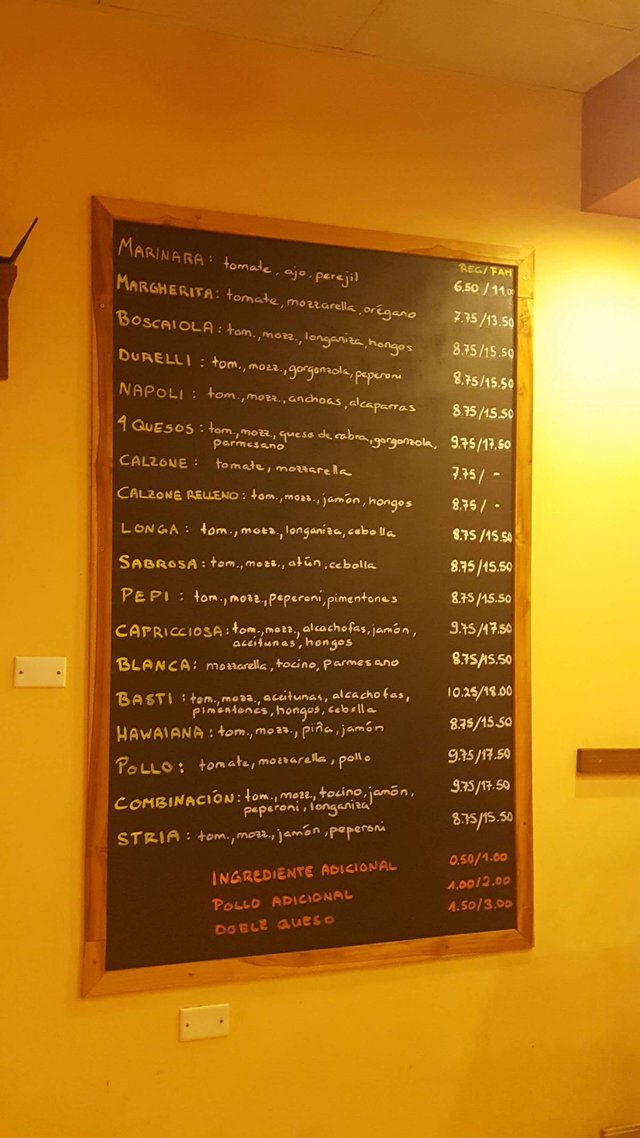 REG/FAM
MARINARA: tomate, ajo, perejil 6.50/11.00
MARGHERITA: tomate, mozzarella, orégano 7.75/13.50
BOSCAIOLA: tom., mozz., longaniza, hongos 8.75/15.50
DURELLI: tom., mozz., gorgonzola, peperoni 8.75/15.50
NAPOLI: tom., mozz., anchoas, alcaparras 8.75/15.50
4 QUESOS: tom., mozz., queso de cabra, gorgonzola, 9.75/17.50
parmesano
CALZONE: tomate, mozzarella 7.75/ -
CALZONE RELLENO: tom., mozz., jamón, hongos 8.75/ -
LONGA: tom., mozz., longaniza, cebolla 8.75/15.50
SABROSA: tom., mozz., atún, cebolla 8.75/15.50
PEPI: tom., mozz., peperoni, pimentones 8.75/15.50
CAPRICCIOSA: tom., mozz., alcachofas, jamón, 9.75/17.50
aceitunas, hongos
BLANCA: mozzarella, tocino, parmesano 8.75/15.50
BASTI: tom., mozz., aceitunas, alcachofas, 10.25/18.00
pimentones, hongos, cebolla
HAWAIANA: tom., mozz., piña, jamón 8.75/15.50
POLLO: tomate, mozzarella, pollo 9.75/17.50
COMBINACIÓN: tom., mozz., tocino, jamón, 9.75/17.50
peperoni, longaniza
STRIA: tom., mozz., jamón, peperoni 8.75/15.50
INGREDIENTE ADICIONAL 0.50/1.00
POLLO ADICIONAL 1.00/2.00
DOBLE QUESO 1.50/3.00